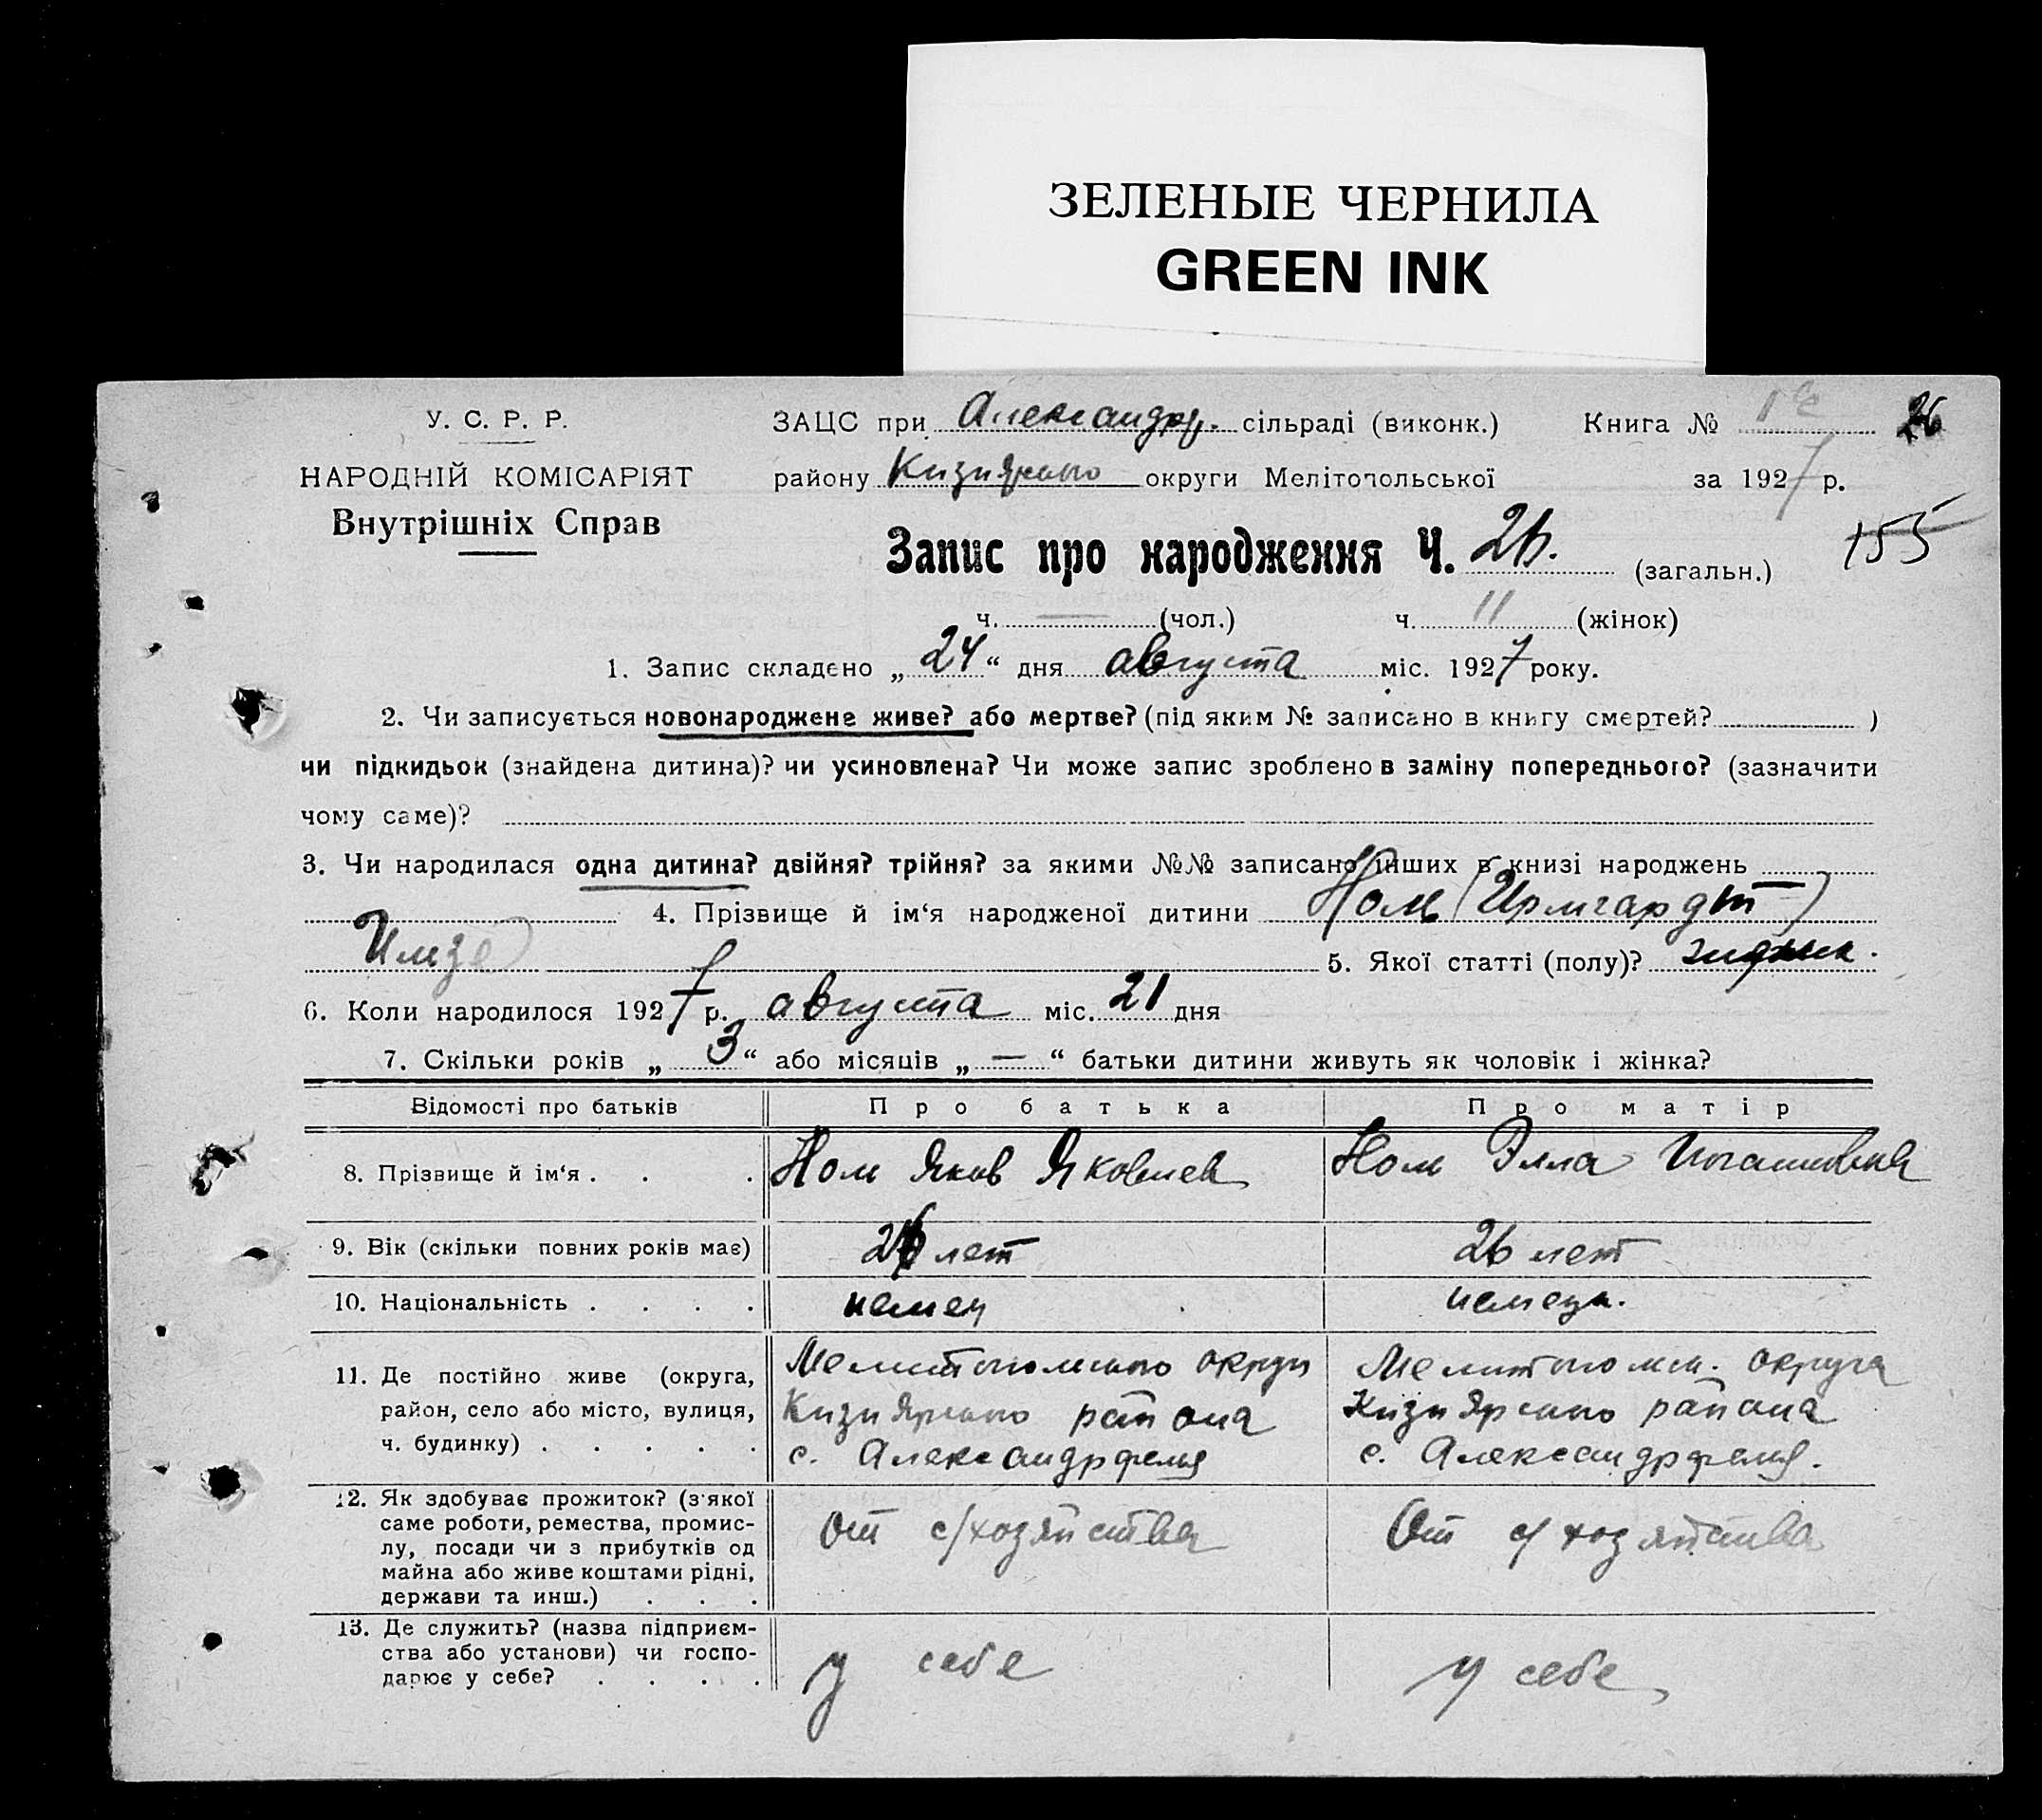 ЗЕЛЕНЫЕ ЧЕРНИЛА
GREEN INK
У. С. Р. Р.
НАРОДНІЙ КОМІСАРІЯТ
Внутрішніх Справ
ЗАЦС при Александрф. сільраді (виконк.) Книга № 26
району Кизиярского округи Мелітопольської за 1927 р.
155
Запис про народження Ч. 26. (загальн.)
ч. — (чол.) ч. 11 (жінок)
1. Запис складено „24“ дня августа міс. 1927 року.
2. Чи записується новонароджене живе? або мертве? (під яким № записано в книгу смертей? )
чи підкидьок (знайдена дитина)? чи усиновлена? Чи може запис зроблено в заміну попереднього? (зазначити
чому саме)?
3. Чи народилася одна дитина? двійня? трійня? за якими №№ записано інших в книзі народжень
4. Прізвище й ім‘я народженої дитини Ноль (Ирмгардт)
Илзе 5. Якої статті (полу)?
6. Коли народилося 1927 р. августа міс. 21 дня
7. Скільки років „3“ або місяців „—“ батьки дитини живуть як чоловік і жінка?
Відомості про батьків Про батька Про матір
8. Прізвище й ім‘я . . . Ноль Яков Яковлев Ноль Элла
9. Вік (скільки повних років має) 26 лет 26 лет
10. Національність . . . . немец немецк.
11. Де постійно живе (округа,
район, село або місто, вулиця,
ч. будинку) . . . . .
Мелитопольского округи
Кизиярского района
с. Александрфельд
Мелитопольск. округа
Кизиярского района
с. Александрфельд.
12. Як здобуває прожиток? (з'якої
саме роботи, ремества, промис-
лу, посади чи з прибутків од
майна або живе коштами рідні,
держави та инш.) . . .
От с/хозяйства От с/хозяйства
13. Де служить? (назва підприєм-
ства або установи) чи госпо-
дарює у себе? . . . .
у себе у себе